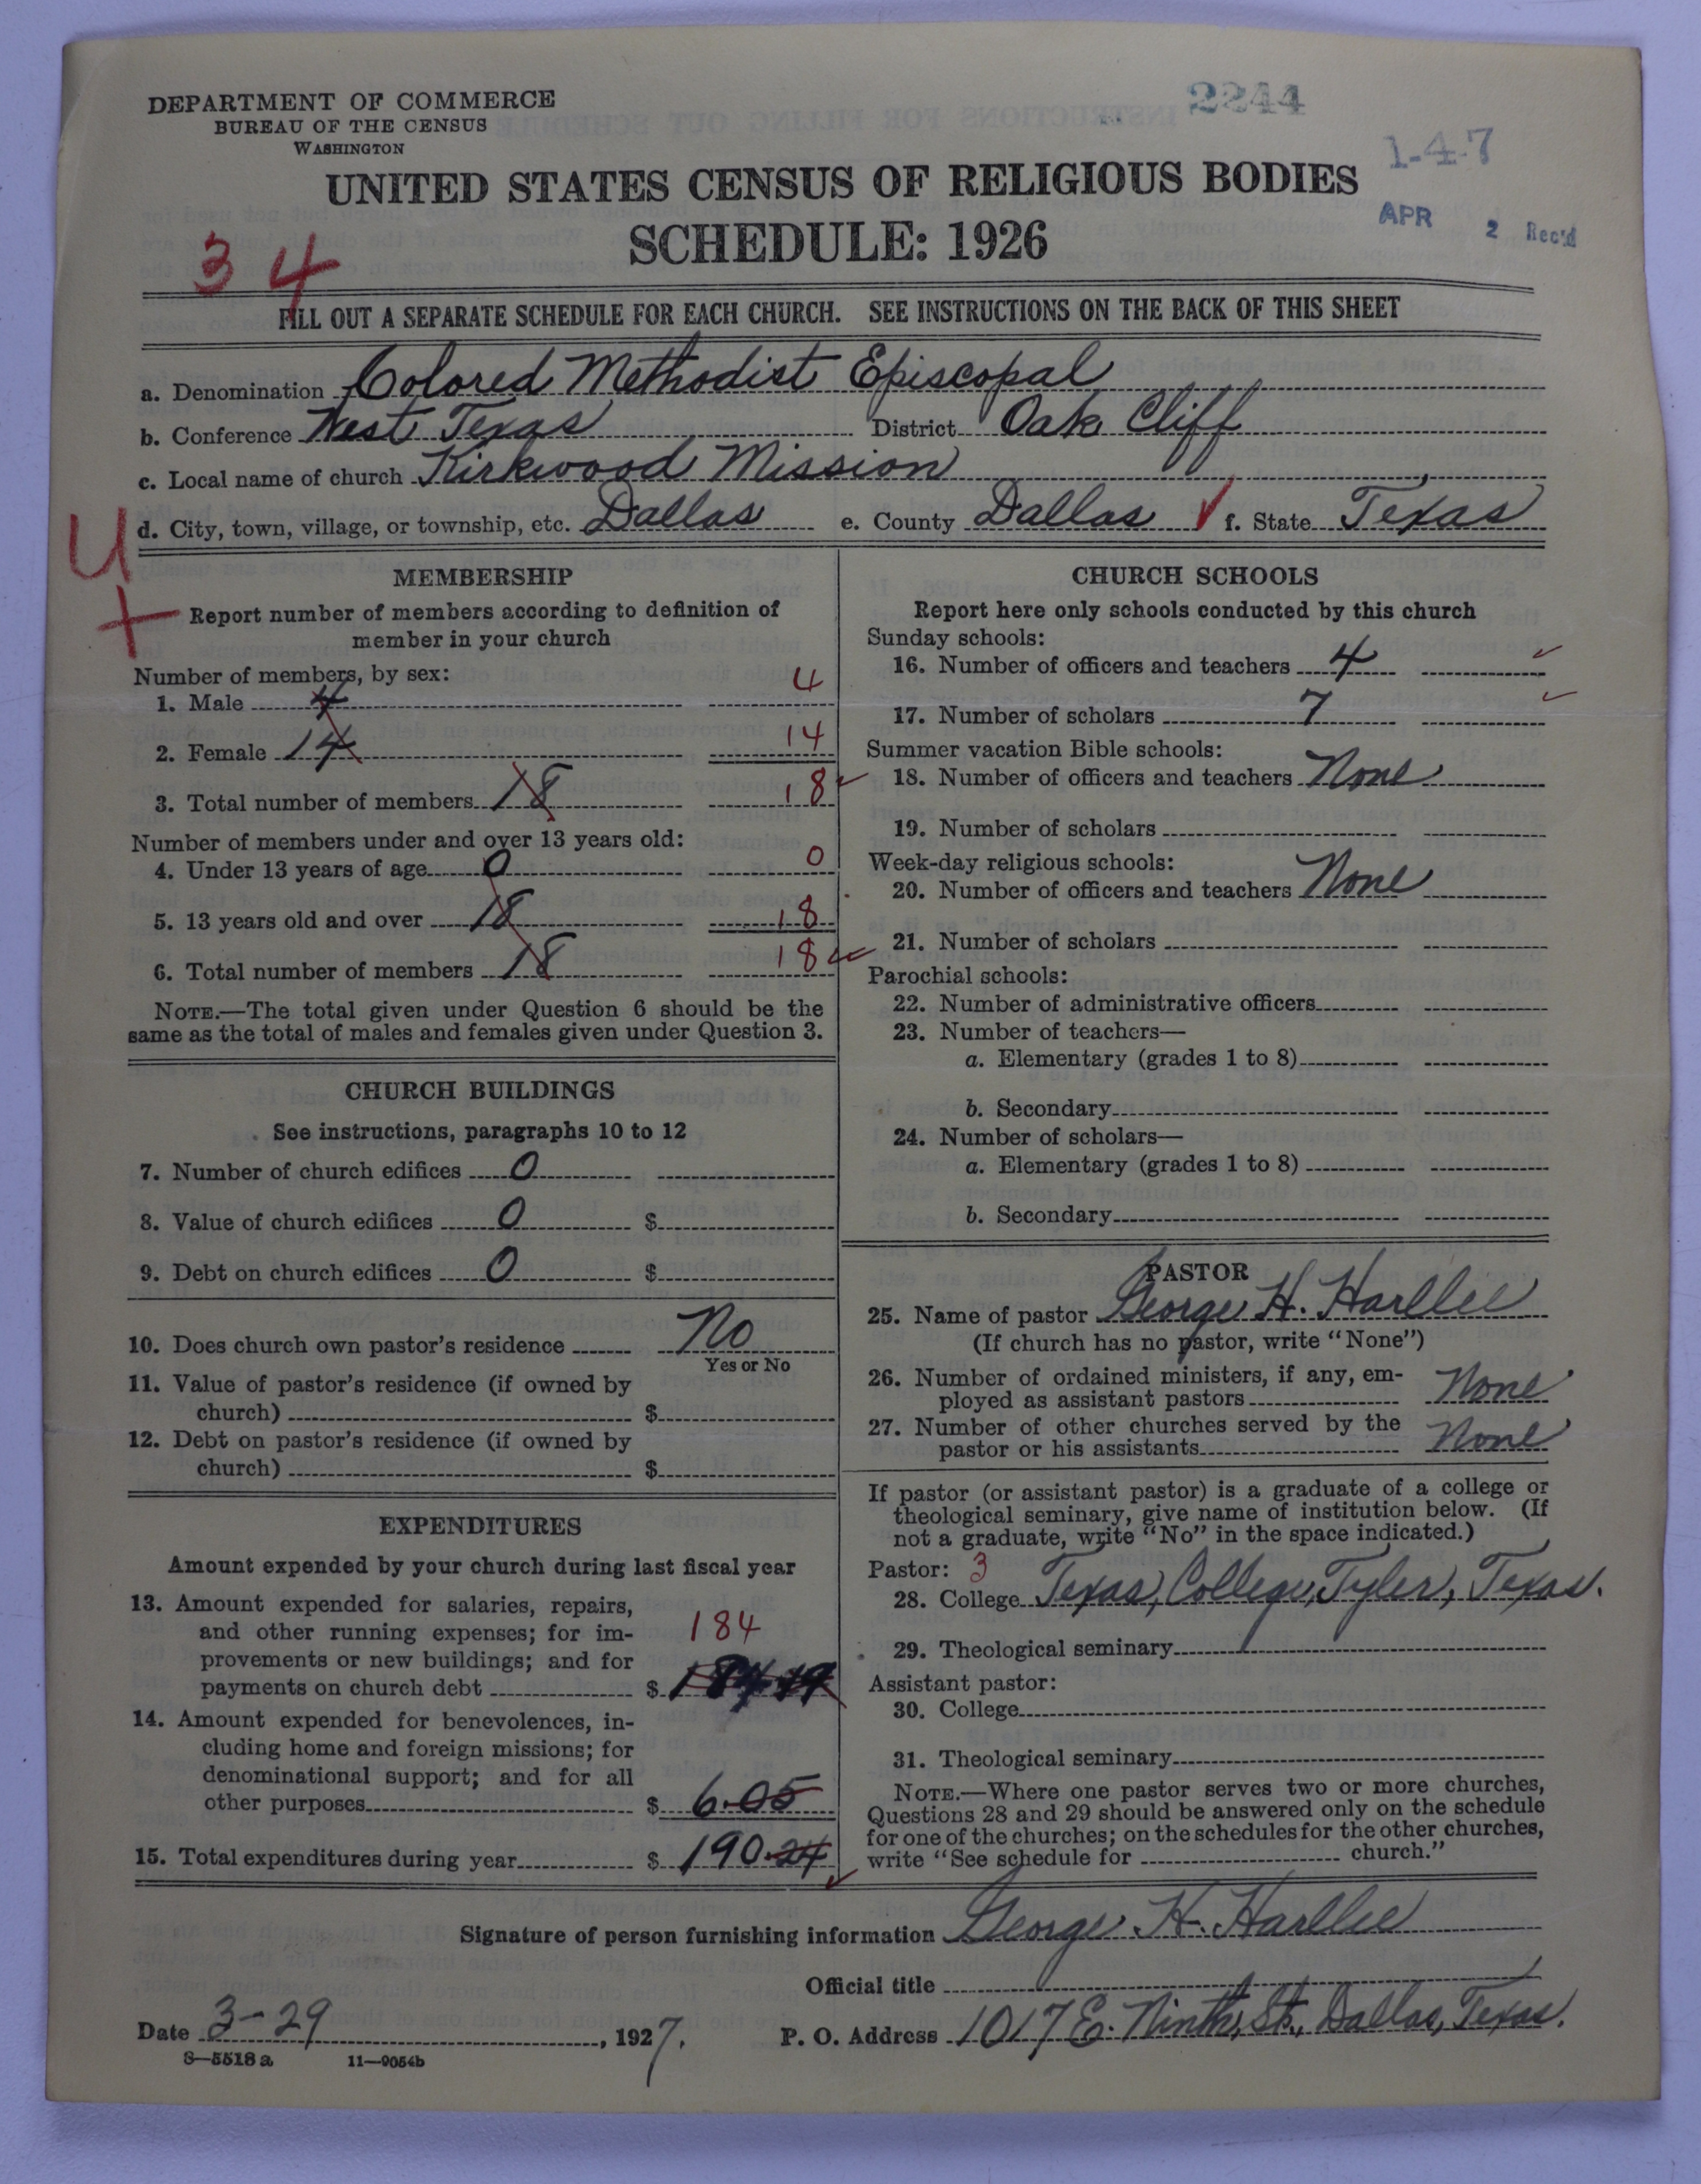 2244
DEPARTMENT OF COMMERCE
BUREAU OF THE CENSUS
WASHINGTON
1-4-7
UNITED STATES CENSUS OF RELIGIOUS BODIES
SCHEDULE: 1926
APR 2 Rec'd
34
FILL OUT A SEPARATE SCHEDULE FOR EACH CHURCH. SEE INSTRUCTIONS ON THE BACK OF THIS SHEET
a. Denomination Colored Methodist Episcopal
b. Conference West Texas District Oak Cliff
c. Local name of church Kirkwood Mission
d. City, town, village, or township, etc. Dallas e. County Dallas f. State Texas
U
+
MEMBERSHIP
Report number of members according to definition of
member in your church
Number of members, by sex:
1. Male 4 4
2. Female 14 14
3. Total number of members 18 18
Number of members under and over 13 years old:
4. Under 13 years of age 0 0
5. 13 years old and over 18 18
6. Total number of members 18 18
NOTE.—The total given under Question 6 should be the
same as the total of males and females given under Question 3.
CHURCH BUILDINGS
See instructions, paragraphs 10 to 12
7. Number of church edifices 0
8. Value of church edifices 0 $
9. Debt on church edifices 0 $
10. Does church own pastor's residence No
Yes or No
11. Value of pastor's residence (if owned by
church) $
12. Debt on pastor's residence (if owned by
church) $
EXPENDITURES
Amount expended by your church during last fiscal year
13. Amount expended for salaries, repairs,
and other running expenses; for im-
provements or new buildings; and for
184
payments on church debt $ 184.19
14. Amount expended for benevolences, in-
cluding home and foreign missions; for
denominational support; and for all
other purposes $ 6.05
15. Total expenditures during year $ 190.24
CHURCH SCHOOLS
Report here only schools conducted by this church
Sunday schools:
16. Number of officers and teachers 4
17. Number of scholars 7
Summer vacation Bible schools:
18. Number of officers and teachers None
19. Number of scholars
Week-day religious schools:
20. Number of officers and teachers None
21. Number of scholars
Parochial schools:
22. Number of administrative officers
23. Number of teachers—
a. Elementary (grades 1 to 8)
b. Secondary
24. Number of scholars—
a. Elementary (grades 1 to 8)
b. Secondary
PASTOR
25. Name of pastor George H. Harllee
(If church has no pastor, write "None")
26. Number of ordained ministers, if any, em-
ployed as assistant pastors None
27. Number of other churches served by the
pastor or his assistants None
If pastor (or assistant pastor) is a graduate of a college or
theological seminary, give name of institution below. (If
not a graduate, write "No" in the space indicated.)
Pastor: 3
28. College Texas, College, Tyler, Texas.
29. Theological seminary
Assistant pastor:
30. College
31. Theological seminary
NOTE.—Where one pastor serves two or more churches,
Questions 28 and 29 should be answered only on the schedule
for one of the churches; on the schedules for the other churches,
write "See schedule for church."
Signature of person furnishing information George H. Harllee
Official title
Date 3-29, 1927. P. O. Address 1017 E. Ninth, St., Dallas, Texas.
S—5518 a 11—9054b